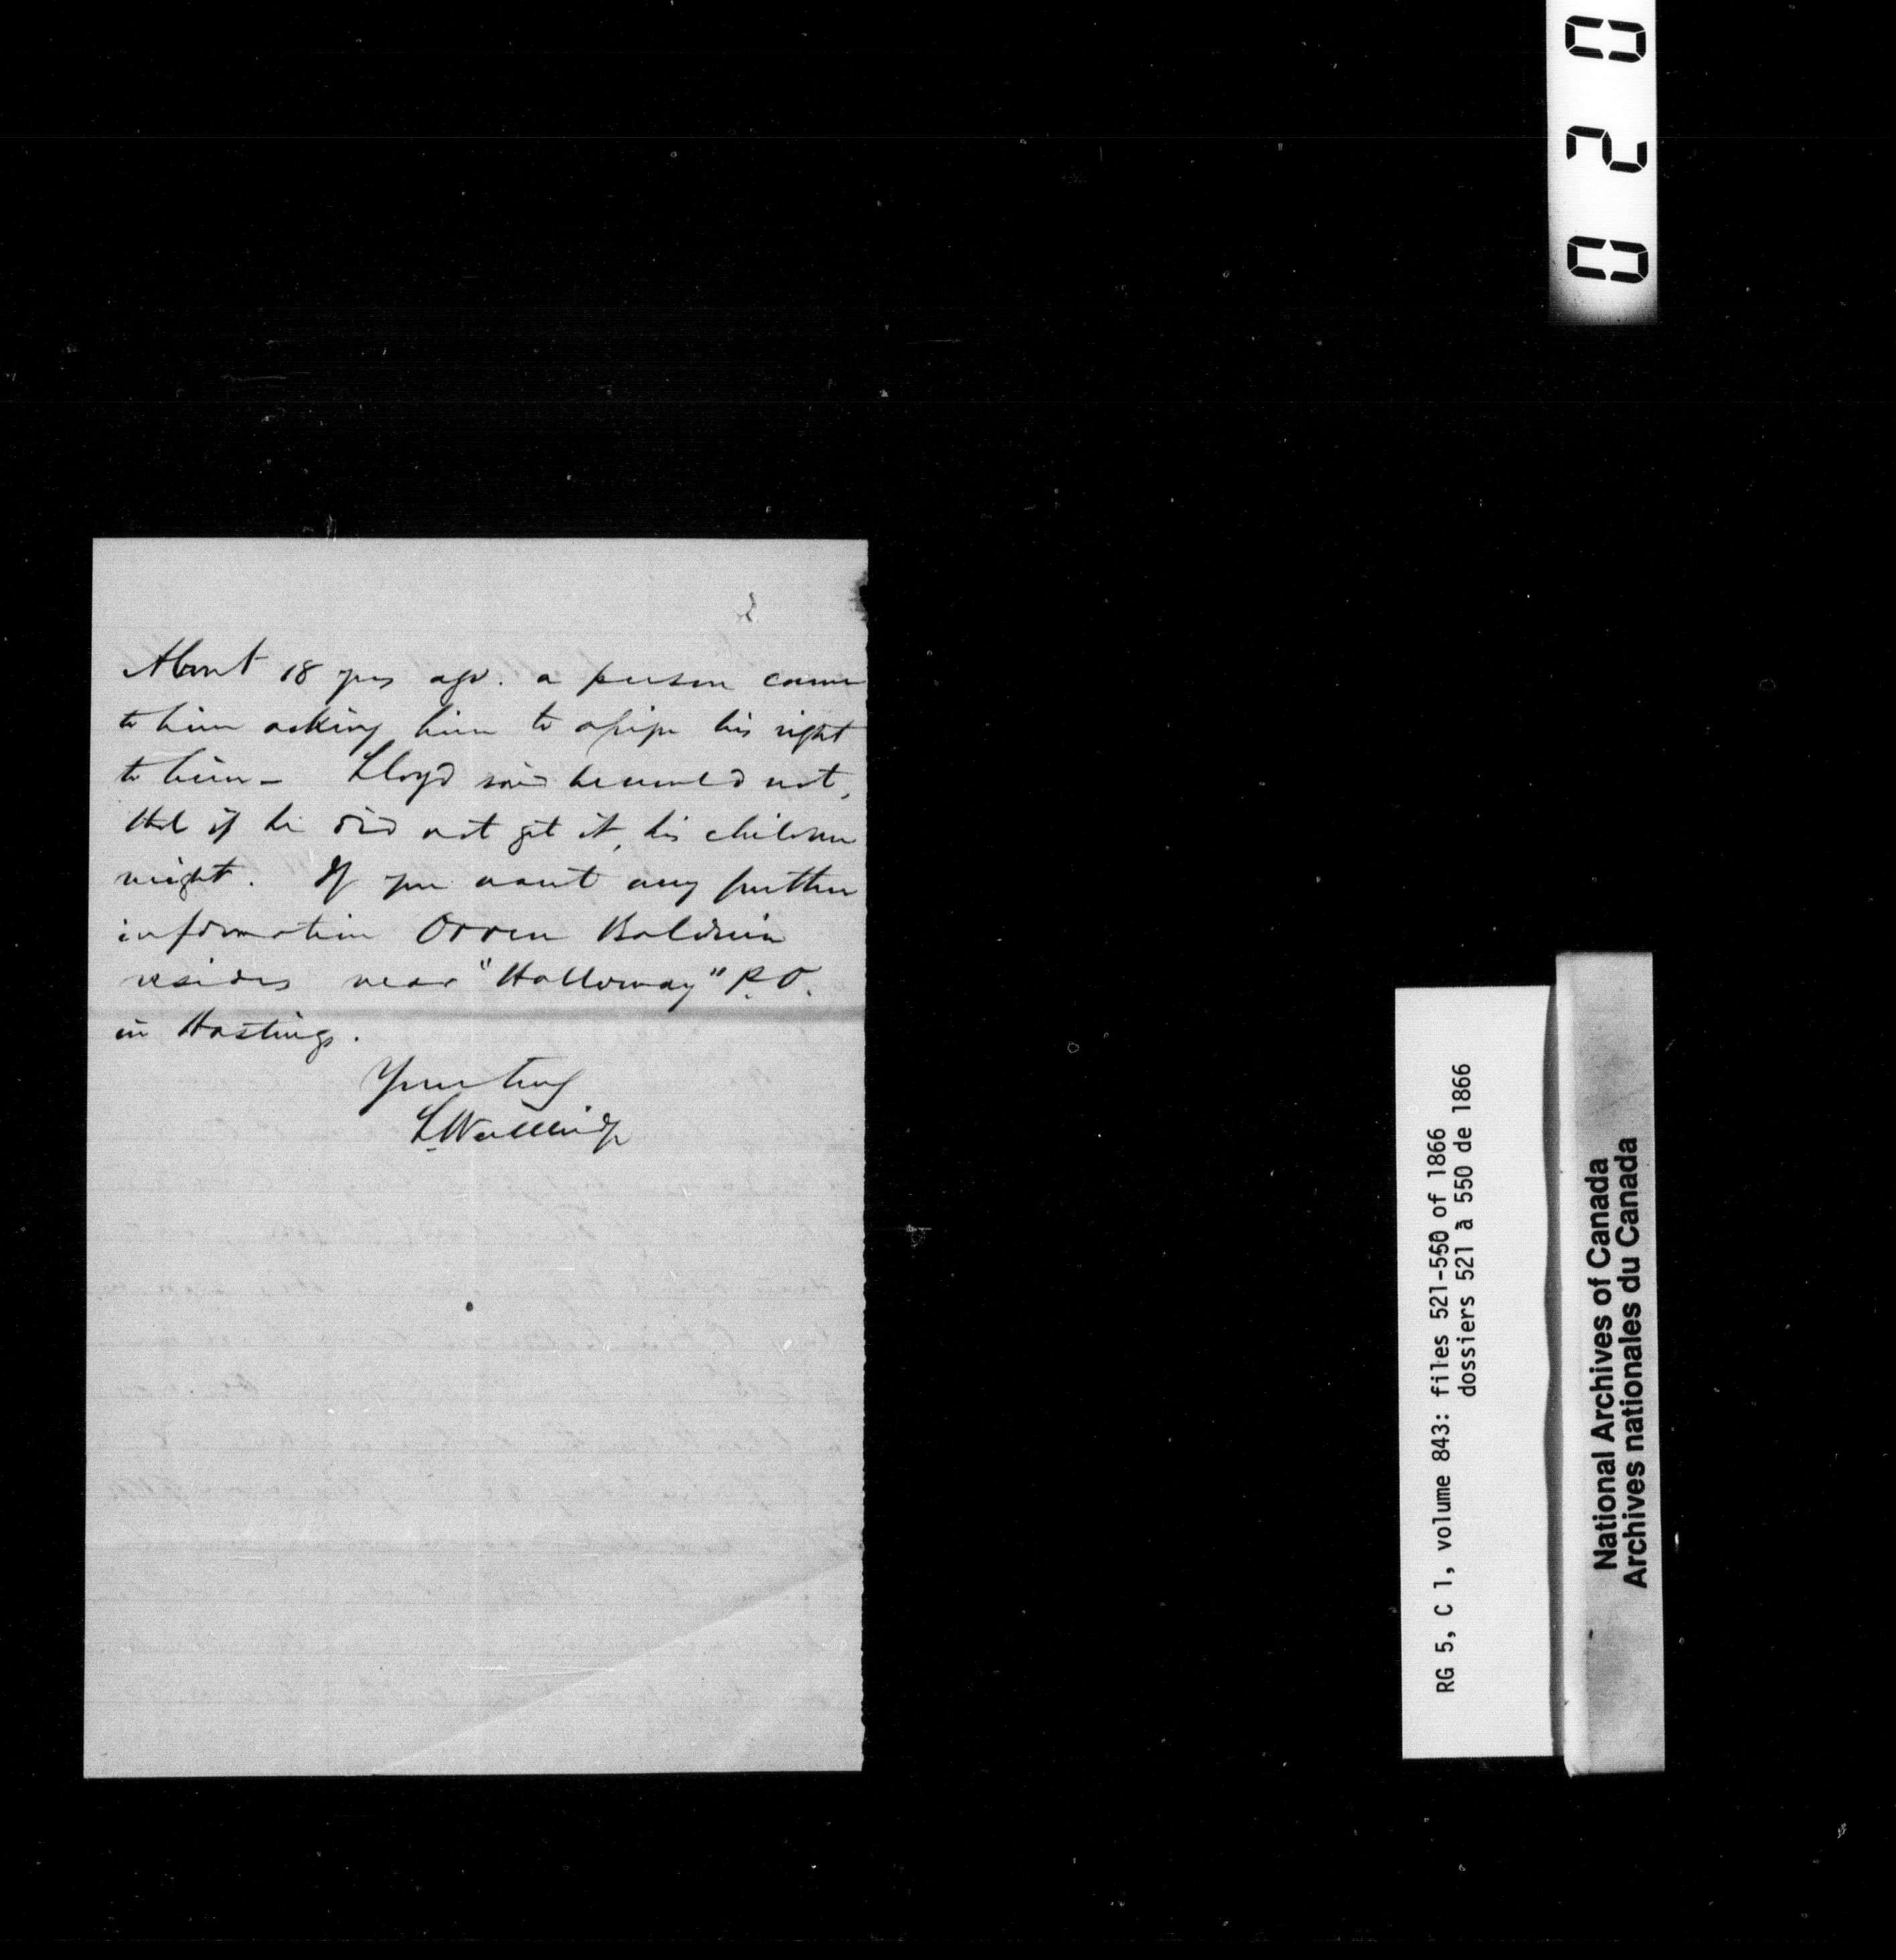 2
About 18 yrs ago. a person came
to him asking him to assign his right
to him - Lloyd said he would not,
that if he did not get it, his children
might. If you want any further
information Orren Baldwin
resides near "Holloway" P.O.
in Hastings.
Yours truly
L Wallbridge
020
RG 5, C 1, volume 843: files 521-550 of 1866
dossiers 521 à 550 de 1866
National Archives of Canada
Archives nationales du Canada